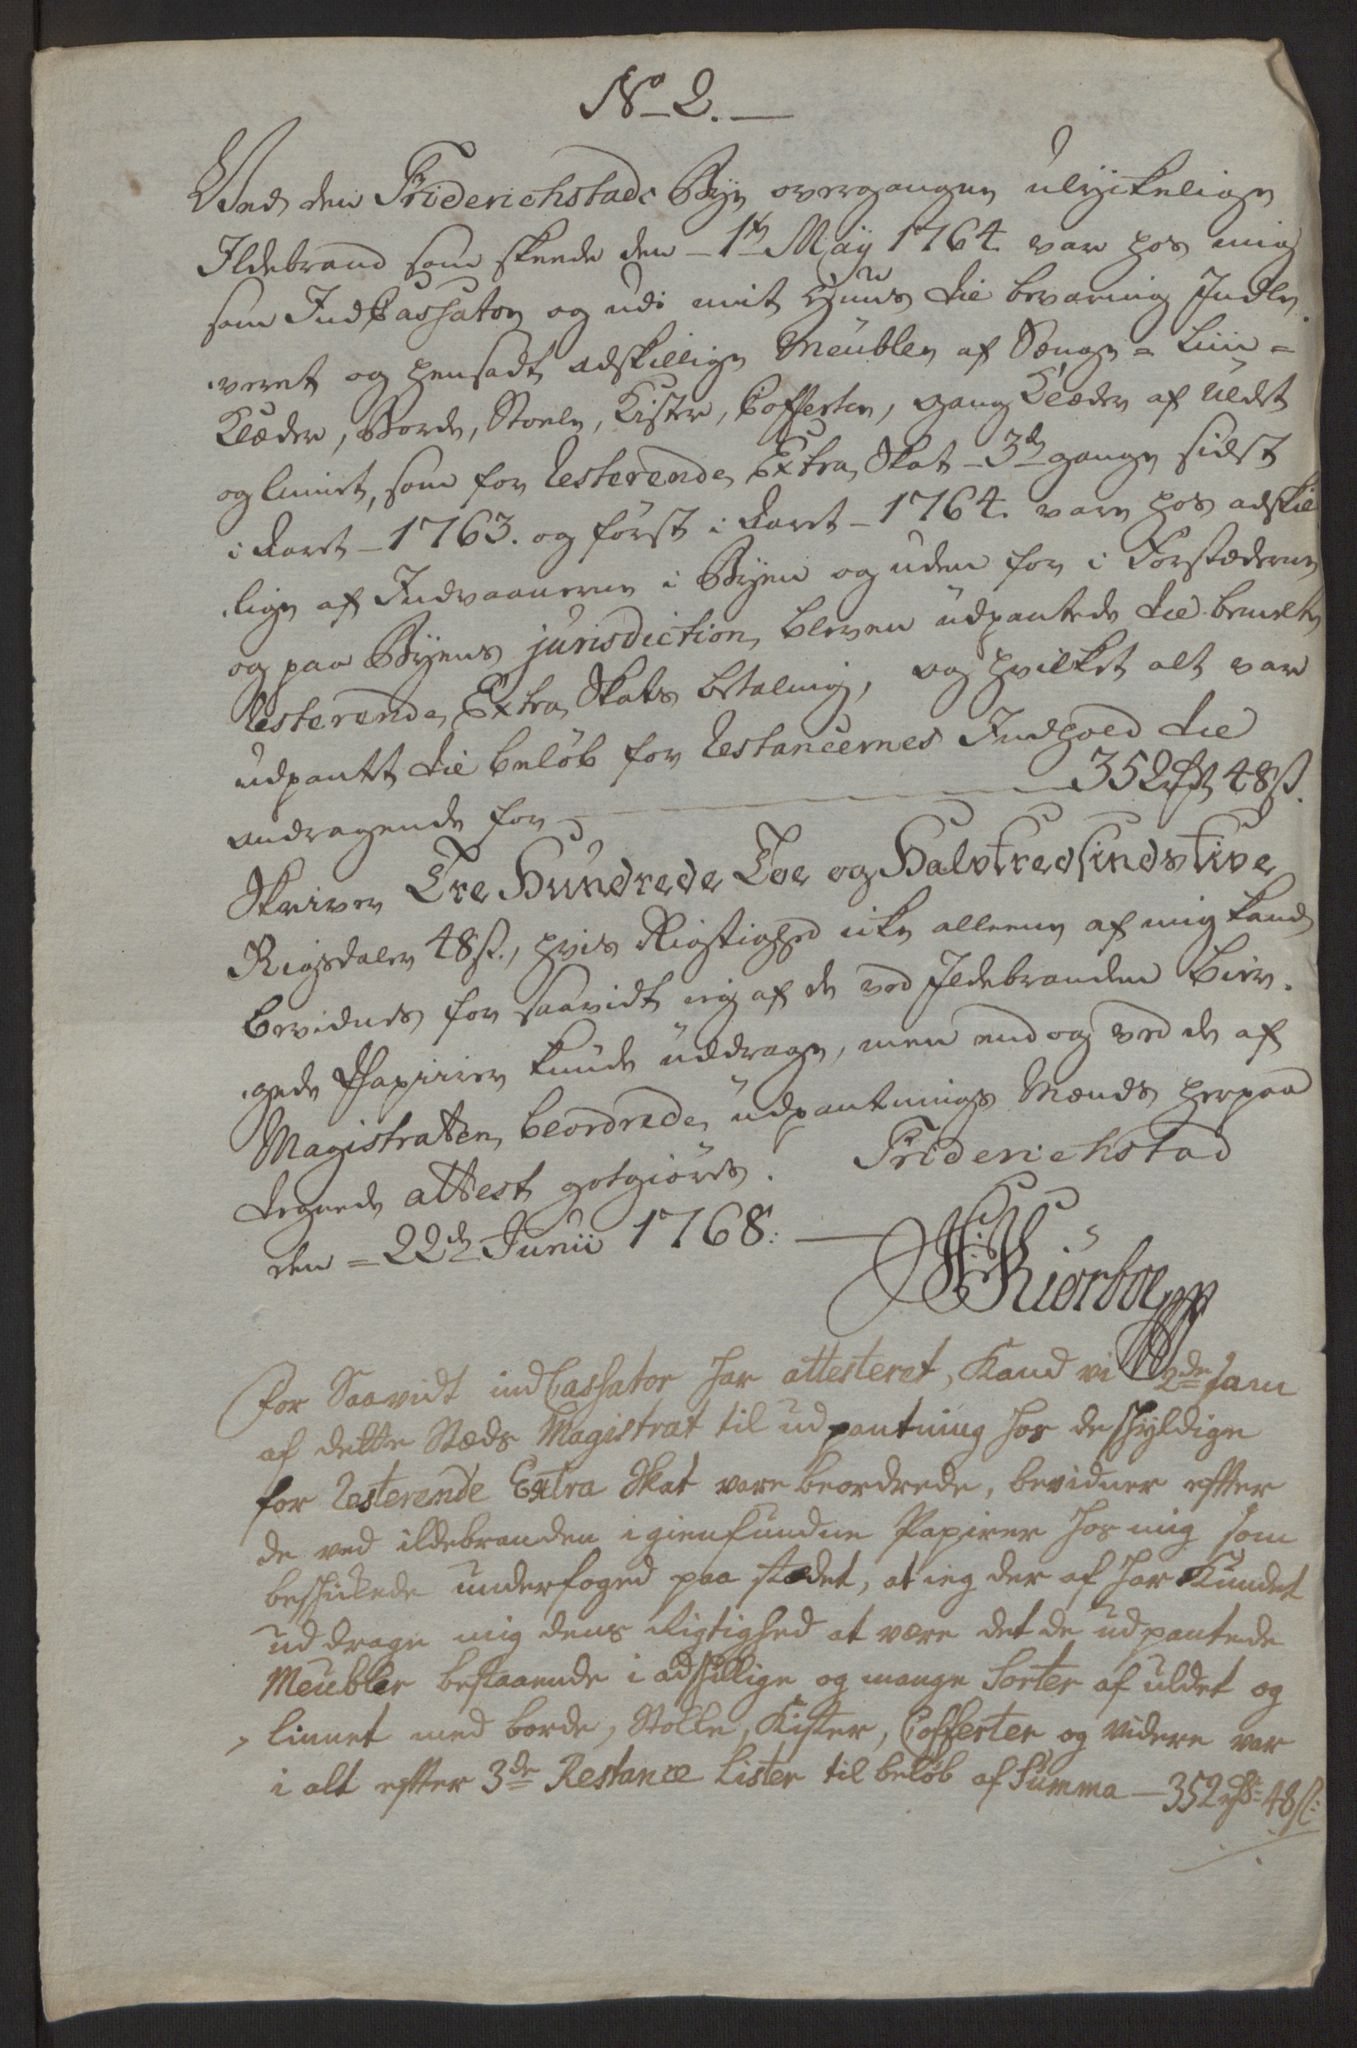 No 2.
Ved den Friderichstads Bye overgangne ulyckelige
Ildebrand som skeede den 1te May 1764 var hos mig
som IndCassator og udi mit Huus til bevaring Indle-
veret og hensadt adskillige Meubler af Senge- Liin-
Klæder, Borde, Stoele, Kister, Cofferter, gang Klæder af Uldet
og linnet, som for resterende Extra Skat 3de gange sidst
i Aaret 1763. og först i Aaret 1764. vare hos adskil
lige af Indvaanerne i Byen og uden for i Forstæderne
og paa Byens jurisdiction, bleven udpantede til bemelte
resterende Extra Skats betaling, og hvilket alt var
udpantt til beløb for restancernes Indhold til
andragende for 352 Rdr 48 s.
Skriver Tre Hundrede Toe og Halvtredsindstive
Rigsdaler 48 s., hvis Rigtighed icke alleene af mig kand
bevidnes for saavidt ieg af de ved Ildebranden bier-
gede Papiirer kunde uddrage, men endog ved de af
Magistraten beordrede udpantnings Mænds herpaa
tegnede attest gotgiöres. Friderichstad
den 22de Junii 1768.
Kiørboe
For Saavidt indCassator har attesteret, Kand vi 2de Sam
af dette Stæds Magistrat til udpantning hos de skyldige
for resterende Extra Skat vare beordrede, bevidner efter
de ved ildebranden igienfundne Papirer hos mig som
beskikede underfoged paa stædet, at ieg der af har Kundet
uddrage mig dens Rigtighed at være det de udpantede
Meubler bestaaende i adskillige og mange Sorter af uldet og
linnet med borde, Stolle, Kister, Cofferter og videre var
i alt efter 3de Restance Lister til beløb af Summa 352 Rd 48 s: